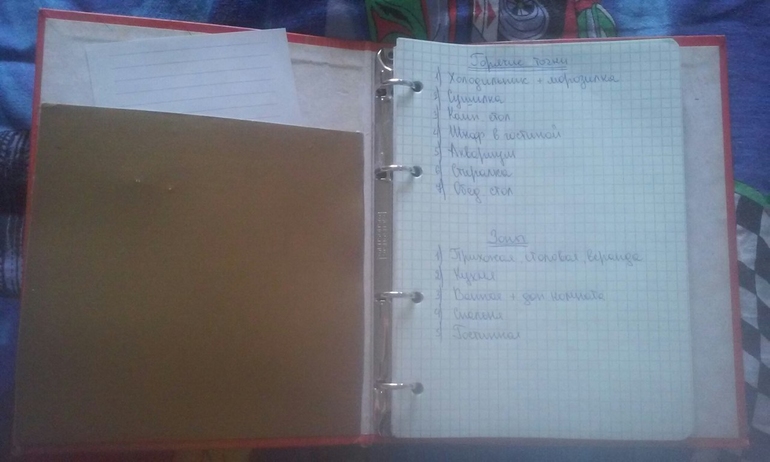 Горячие точки
1) Холодильник + морозилка
2) Сушилка
3) Комп. стол
4) Шкаф в гостиной
5) Аквариум
6) Стиралка
7) Обед. стол
Зоны
1) Прихожая, столовая, веранда
2) Кухня
3) Ванная + доп. комната
4) Спальня
5) Гостинная